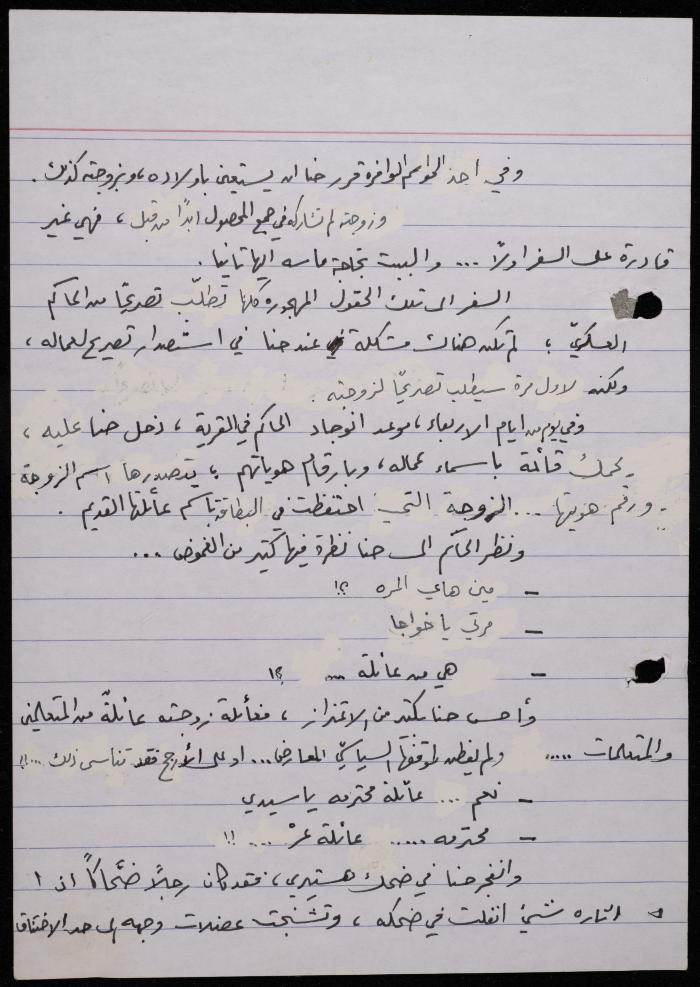 وفي احد المواسم الوافرة قرر حنا ان يستعين باولاده، وبزوجته كذلك .
وزوجته لم تشاركه في جمع المحصول ابدًا من قبل ، فهي غير
قادرة على السفر اولاً ... والبيت بحاجة ماسه اليها ثانيا .
السفر الى تلك الحقول المهجوره كلها تطلّب تصريحًا من الحاكم
العسكريّ ؛ لم تكن هناك مشكلة عند حنا في استصدار تصريح لعماله ،
ولكنه لاول مرة سيطلب تصريحًا لزوجته .
وفي يوم من ايام الاربعاء ، موعد تواجد الحاكم في القرية ، دخل حنا عليه ،
يحمل قائمة باسماء عماله ، وبارقام هوياتهم ؛ يتصدرها اسم الزوجة
ورقم هويتها ... الزوجة التي احتفظت في البطاقة باسم عائلتها القديم .
ونظر الحاكم الى حنا نظرة فيها كثير من الغموض ...
– مين هاي المره ؟!
– مرتي يا خواجا
– هي من عائلة .... ؟!
وأحس حنا بكثير من الاعتزاز ، فعائلة زوجته عائلة من المتعلمين
والمتعلمات ..... ولم يفطن لموقفها السياسيّ المعارض... او على الأرجح فقد تناسى ذلك ...!!
– نعم ... عائلة محترمه يا سيدي
– محترمه ..... عائلة عزْ .... !!
وانفجر حنا في ضحك هستيري ، فقد كان رجلاً ضحّاكًا اذا
اثاره شيئ انفلت في ضحكه ، وتشنجت عضلات وجهه الى حد الاختناق